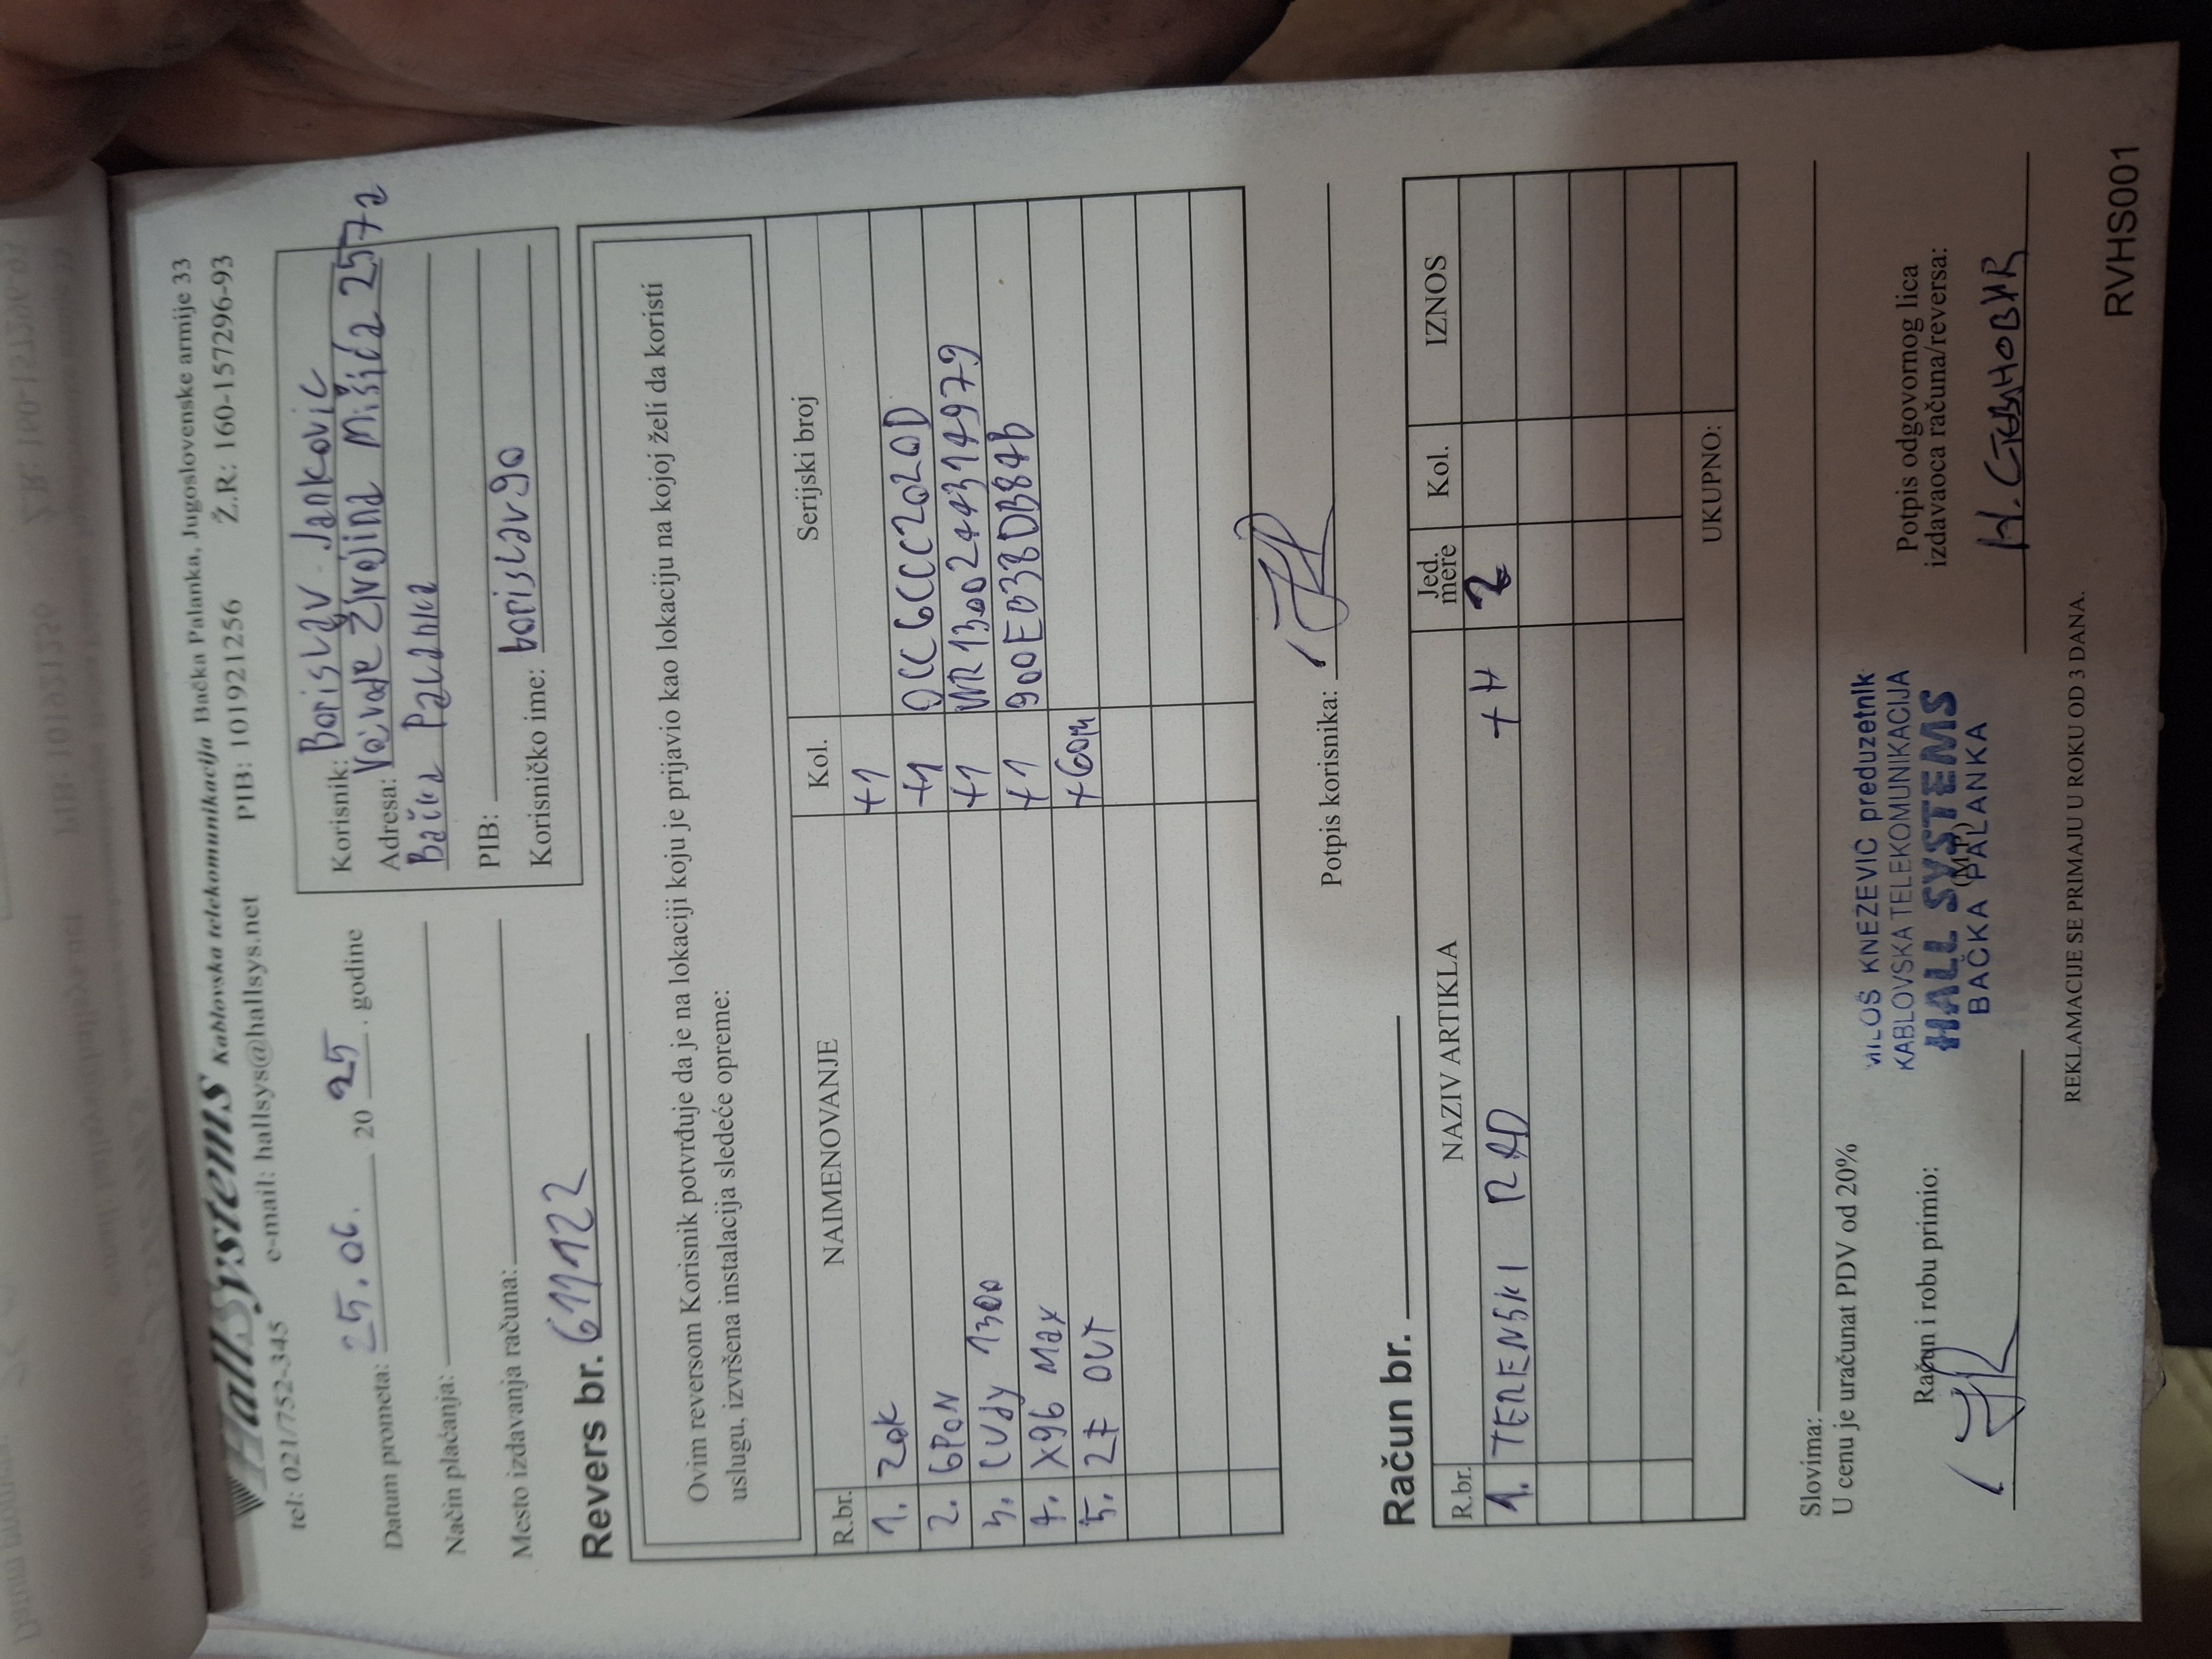 HallSystems Kablovska telekomunikacija Bačka Palanka, Jugoslovenske armije 33
tel: 021/752-345 e-mail: hallsys@hallsys.net PIB: 101921256 Ž.R: 160-157296-93
Datum prometa: 25.06. 2025. godine
Način plaćanja:
Mesto izdavanja računa:
Korisnik: Borislav Janković
Adresa: Vojvode Živojina Mišića 257a
Bačka Palanka
PIB:
Korisničko ime: borislav90
Revers br. 611122
Ovim reversom Korisnik potvrđuje da je na lokaciji koju je prijavio kao lokaciju na kojoj želi da koristi
uslugu, izvršena instalacija sledeće opreme:
R.br. NAIMENOVANJE Kol. Serijski broj
1. ZOK +1
2. GPON +1 DCC6CCC2020D
3. CUDY 1300 +1 WR1300244314979
4. X96 MAX +1 900EB38DB84b
5. 2F OUT +60m
Potpis korisnika:
Račun br.
R.br. NAZIV ARTIKLA Jed. mere Kol. IZNOS
1. TERENSKI RAD +H 2
UKUPNO:
Slovima:
U cenu je uračunat PDV od 20%
Račun i robu primio:
MILOŠ KNEZEVIC preduzetnik
KABLOVSKA TELEKOMUNIKACIJA
HALL SYSTEMS
(M.P.)
BAČKA PALANKA
Potpis odgovornog lica
izdavaoca računa/reversa:
Н. СТЕВАНОВИЋ
REKLAMACIJE SE PRIMAJU U ROKU OD 3 DANA.
RVHS001